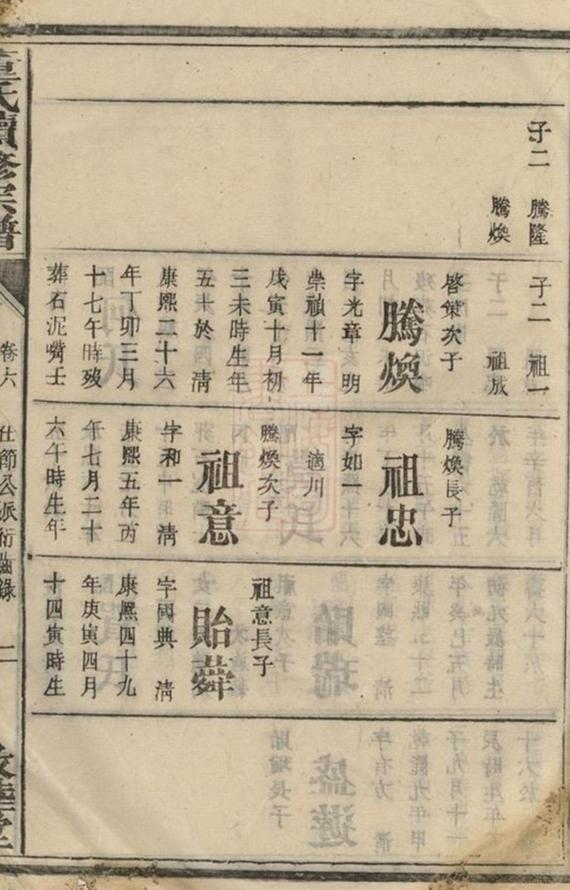 子二　騰隆
騰煥
子二　祖一
祖威
啓策次子
騰煥
字光章　明
崇禎十一年
戊寅十月初
三未時生年
五十於　清
康熙二十六
年丁卯三月
十七午時歿
葬石泥嘴壬
騰煥長子
祖忠
字如一
適川
騰煥次子
祖意
字和一　清
康熙五年丙
午七月二十
六午時生年
祖意長子
貽舜
字國典　清
康熙四十九
年庚寅四月
十四寅時生
氏續修宗譜
卷六
仕節公派衍齒錄
二